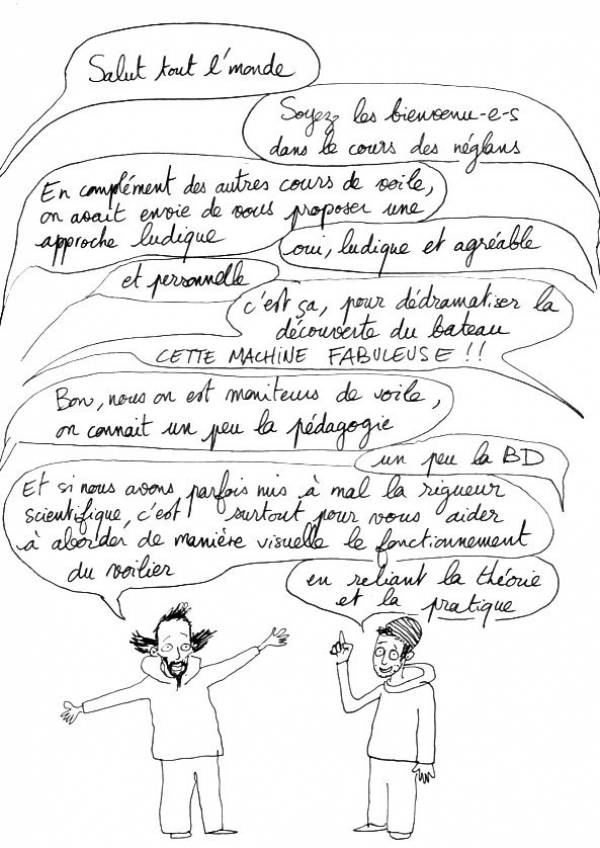 Salut tout l'monde
Soyez les bienvenu-e-s
dans le cours des néglans
En complément des autres cours de voile,
on avait envie de vous proposer une
approche ludique
oui, ludique et agréable
et personnelle
c'est ça, pour dédramatiser la
découverte du bateau
CETTE MACHINE FABULEUSE !!
Bon, nous on est moniteurs de voile,
on connait un peu la pédagogie
un peu la BD
Et si nous avons parfois mis à mal la rigueur
scientifique, c'est surtout pour vous aider
à aborder de manière visuelle le fonctionnement
du voilier
en reliant la théorie
et la pratique